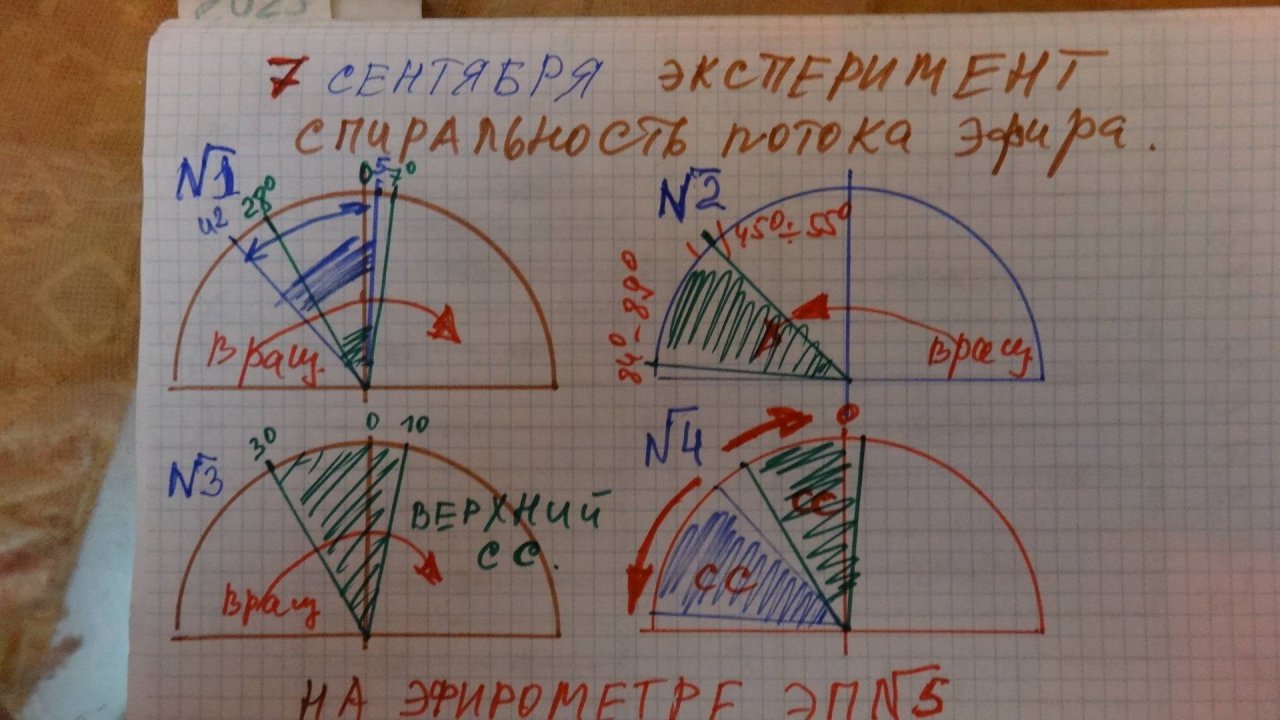 2025
7 СЕНТЯБРЯ ЭКСПЕРИМЕНТ
СПИРАЛЬНОСТЬ ПОТОКА ЭФИРА.
№1
42
28°
0
5
7°
Вращ.
№2
45°÷55°
84°-89°
Вращ
№3
30
0
10
ВЕРХНИЙ
СС.
Вращ
№4
0
СС
СС
НА ЭФИРОМЕТРЕ ЭП№5